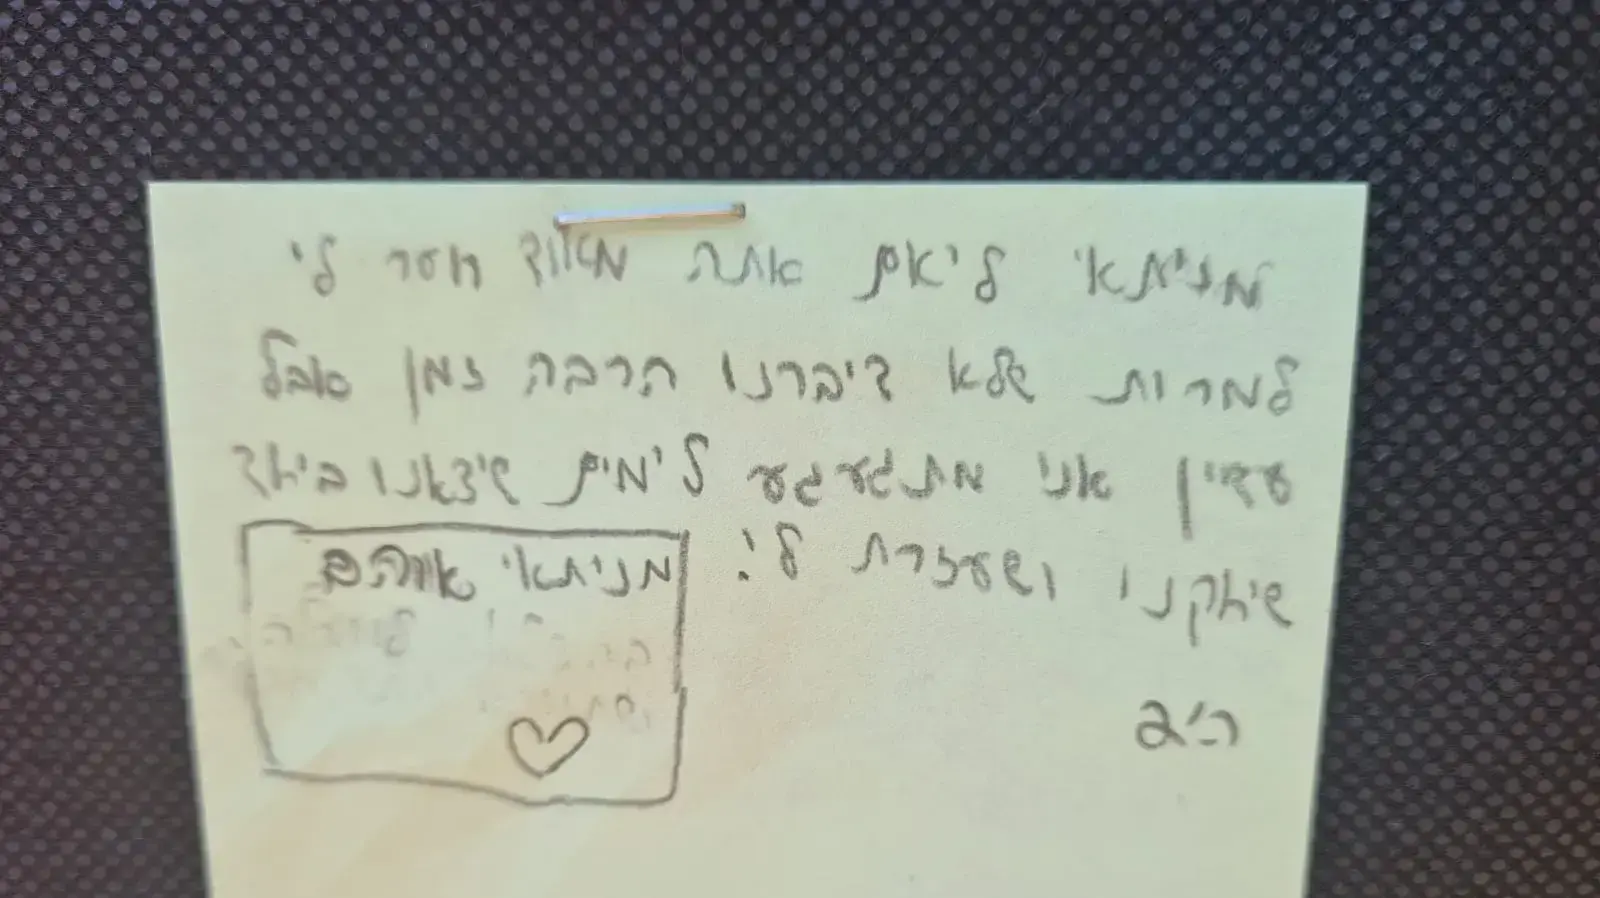 מניתאי ליאם אתה מאוד חסר לי
למרות שלא דיברנו הרבה זמן אבל
עדיין אני מתגעגע לימים שיצאנו ביחד
שיחקנו ושעזרת לי!
מניתאי אוהב
ה'2